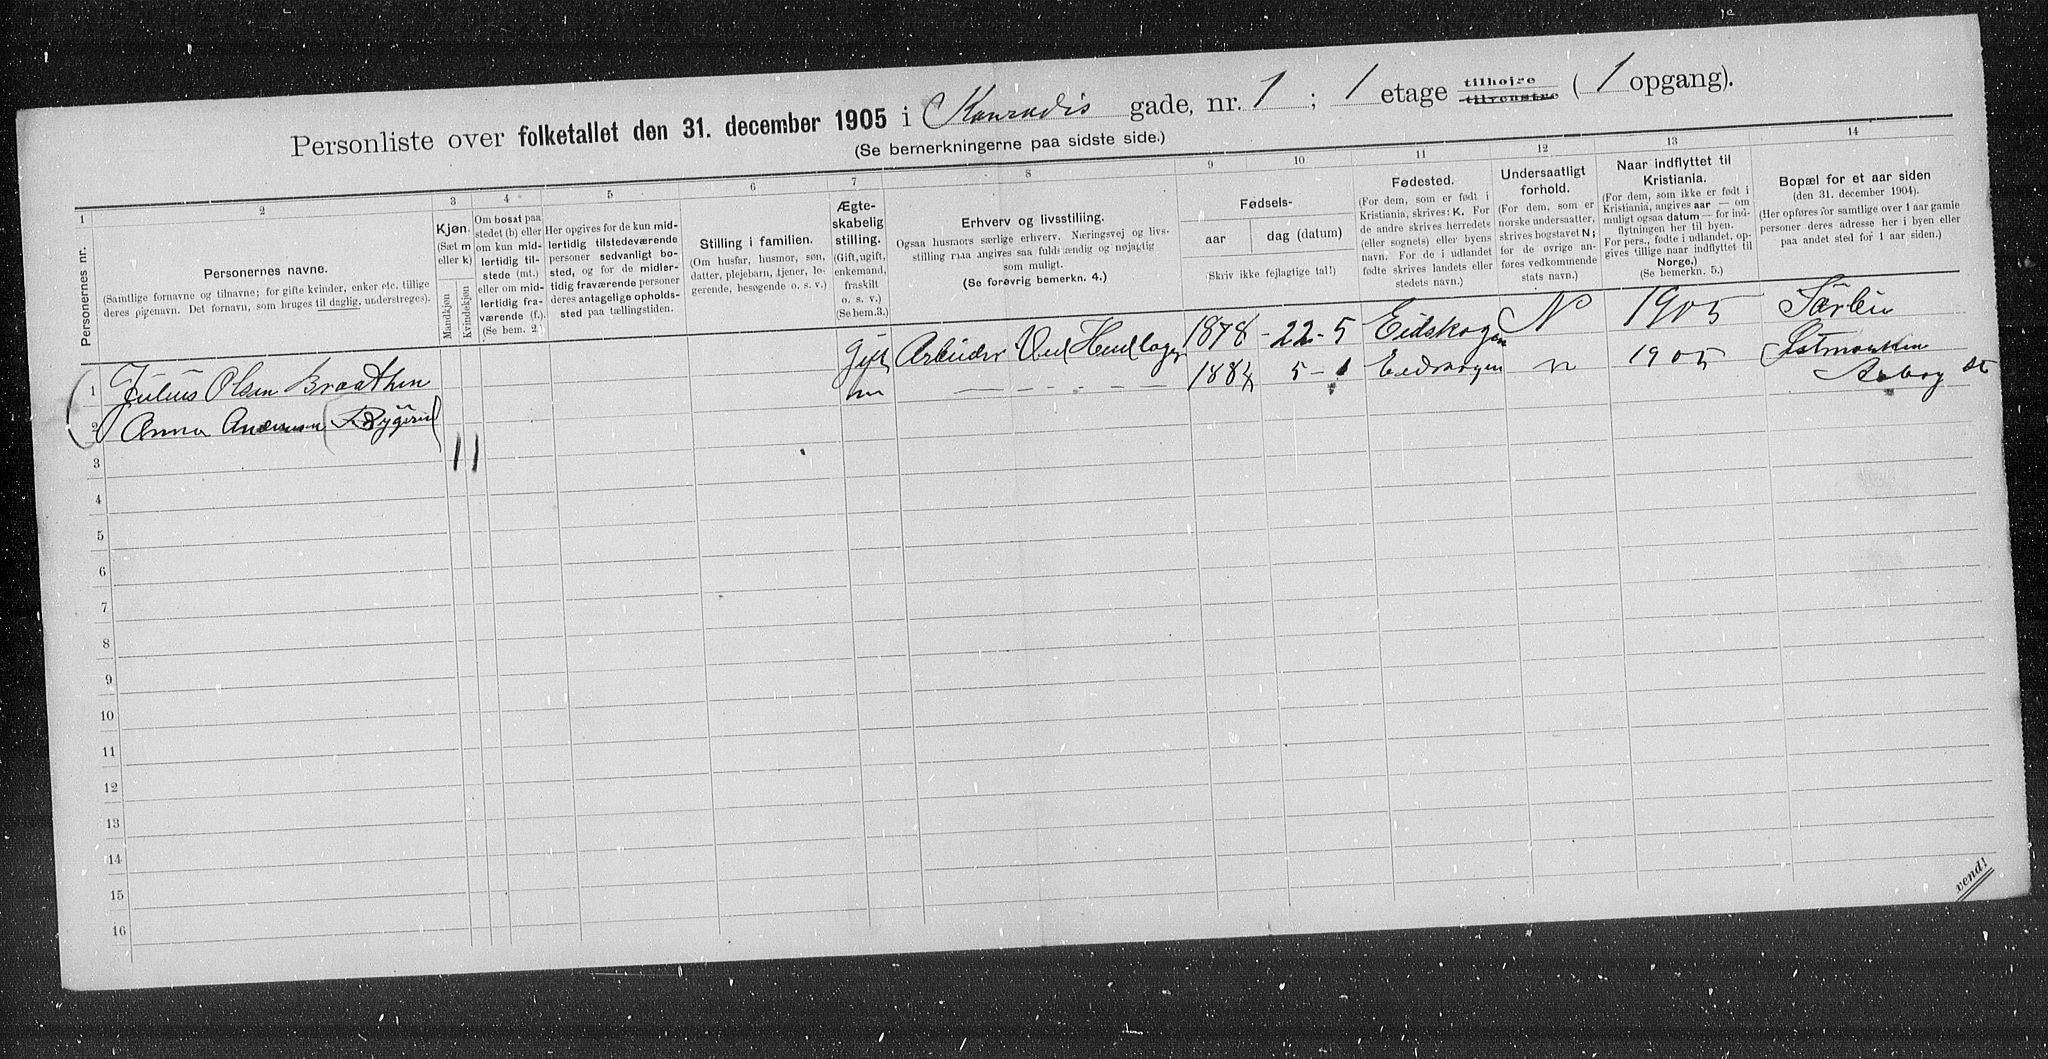 Personliste over folketallet den 31. december 1905 i Konradis gade, nr. 1 ; 1 etage tilhøjre tilvenstre ( 1 opgang).
(Se bemerkningerne paa sidste side.)
1 2 3 4 5 6 7 8 9 10 11 12 13 14
Personernes nr.
Personernes navne.
(Samtlige fornavne og tilnavne; for gifte kvinder, enker etc. tillige
deres pigenavn. Det fornavn, som bruges til daglig, understreges).
Kjøn.
(Sæt m
eller k)
Mandkjøn
Kvindekjøn
Om bosat paa
stedet (b) eller
om kun mid-
lertidig til-
stede (mt.)
eller om mid-
lertidig fra-
værende (f.).
(Se bem. 2.)
Her opgives for de kun mid-
lertidig tilstedeværende
personer sedvanlig bo-
sted, og for de midler-
tidig fraværende personer
deres antagelige opholds-
sted paa tællingstiden.
Stilling i familien.
(Om husfar, husmor, søn,
datter, plejebarn, tjener, lo-
gerende, besøgende o. s. v.)
Ægte-
skabelig
stilling.
(Gift, ugift,
enkemand,
fraskilt
o. s. v.)
(Se bem.3.)
Erhverv og livsstilling.
Ogsaa husmors særlige erhverv. Næringsvej og livs-
stilling maa angives saa fuldstændig og nøjagtig
som muligt.
(Se forøvrig bemerkn. 4.)
Fødsels-
aar
dag (datum)
(Skriv ikke fejlagtige tal!)
Fødested.
(For dem, som er født i
Kristiania, skrives: K. For
de andre skrives herredets
(eller sognets) eller byens
navn. For de i udlandet
fødte skrives landets eller
stedets navn.)
Undersaatligt
forhold.
(For dem, som er
norske undersaatter,
skrives bogstavet N;
for de øvrige an-
føres vedkommende
stats navn.)
Naar indflyttet til
Kristiania.
(For dem, som ikke er født i
Kristiania, angives aar — om
muligt ogsaa datum — for ind-
flytningen her til byen.
For pers., fødte i udlandet, op-
gives tillige naar indflyttet til
Norge.)
(Se bemerkn. 5.)
Bopæl for et aar siden
(den 31. december 1904).
(Her opføres for samtlige over 1 aar gamle
personer deres adresse her i byen eller
paa andet sted for 1 aar siden.)
1 Julius Olsen Braathen gift Arbeider Ved 1878 - 22 - 5 Eidskogen N 1905
2 Anna Andersen 1884 5 - 1 Eidskogen n 1905
1 1
3
4
5
6
7
8
9
10
11
12
13
14
15
16
vend!